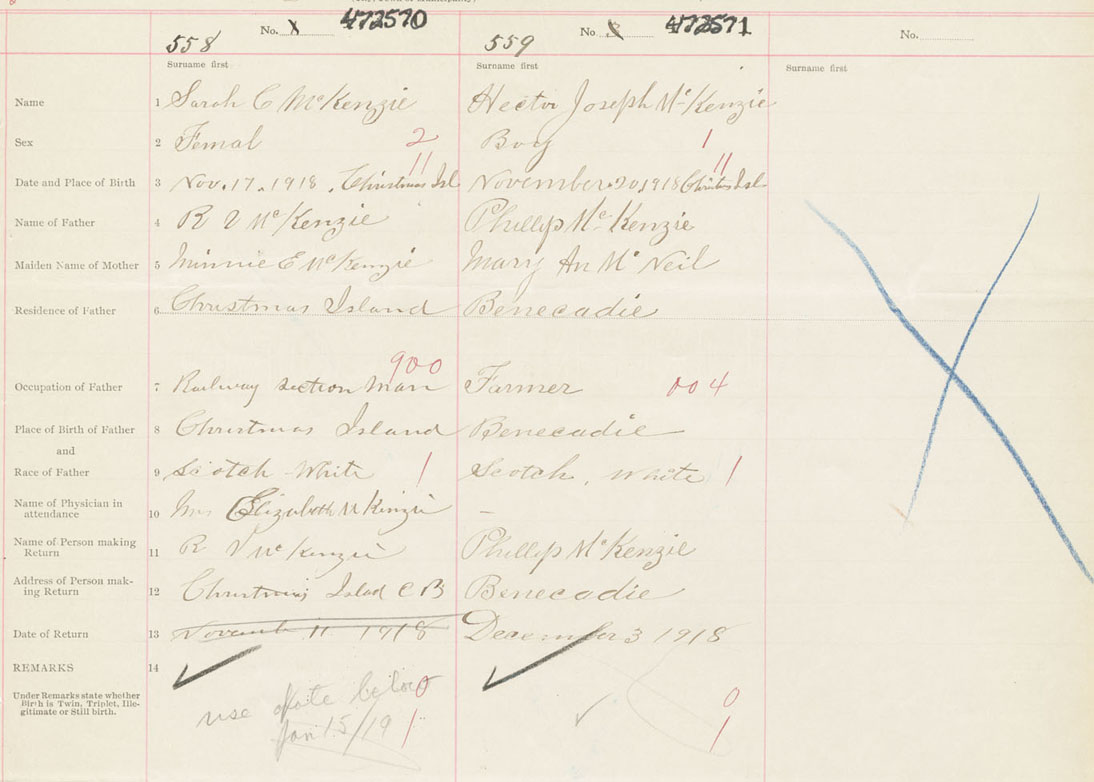 No. X 472570 No. X 472571 No.
558 559
Surname first Surname first Surname first
Name 1 Sarah C McKenzie Hector Joseph McKenzie
Sex 2 Femal 2 Boy 1
11 11
Date and Place of Birth 3 Nov. 17. 1918. Christmas Isl November 20, 1918 Christms Isl
Name of Father 4 R V McKenzie Phillip McKenzie
Maiden Name of Mother 5 Minnie E McKenzie Mary An McNeil
Residence of Father 6 Christmas Island Benecadie
900
Occupation of Father 7 Railway section Man Farmer 004
Place of Birth of Father 8 Christmas Island Benecadie
and
Race of Father 9 Scotch White 1 Scotch, White 1
Name of Physician in
attendance 10 Mrs Elizabeth McKinzie –
Name of Person making
Return 11 R V McKenzie Phillip McKenzie
Address of Person mak-
ing Return 12 Christmas Islad C B Benecadie
Date of Return 13 November 11 1918 December 3 1918
REMARKS 14
Under Remarks state whether
Birth is Twin, Triplet, Ille-
gitimate or Still birth.
use date below 0 0
Jan 15/19 1 1